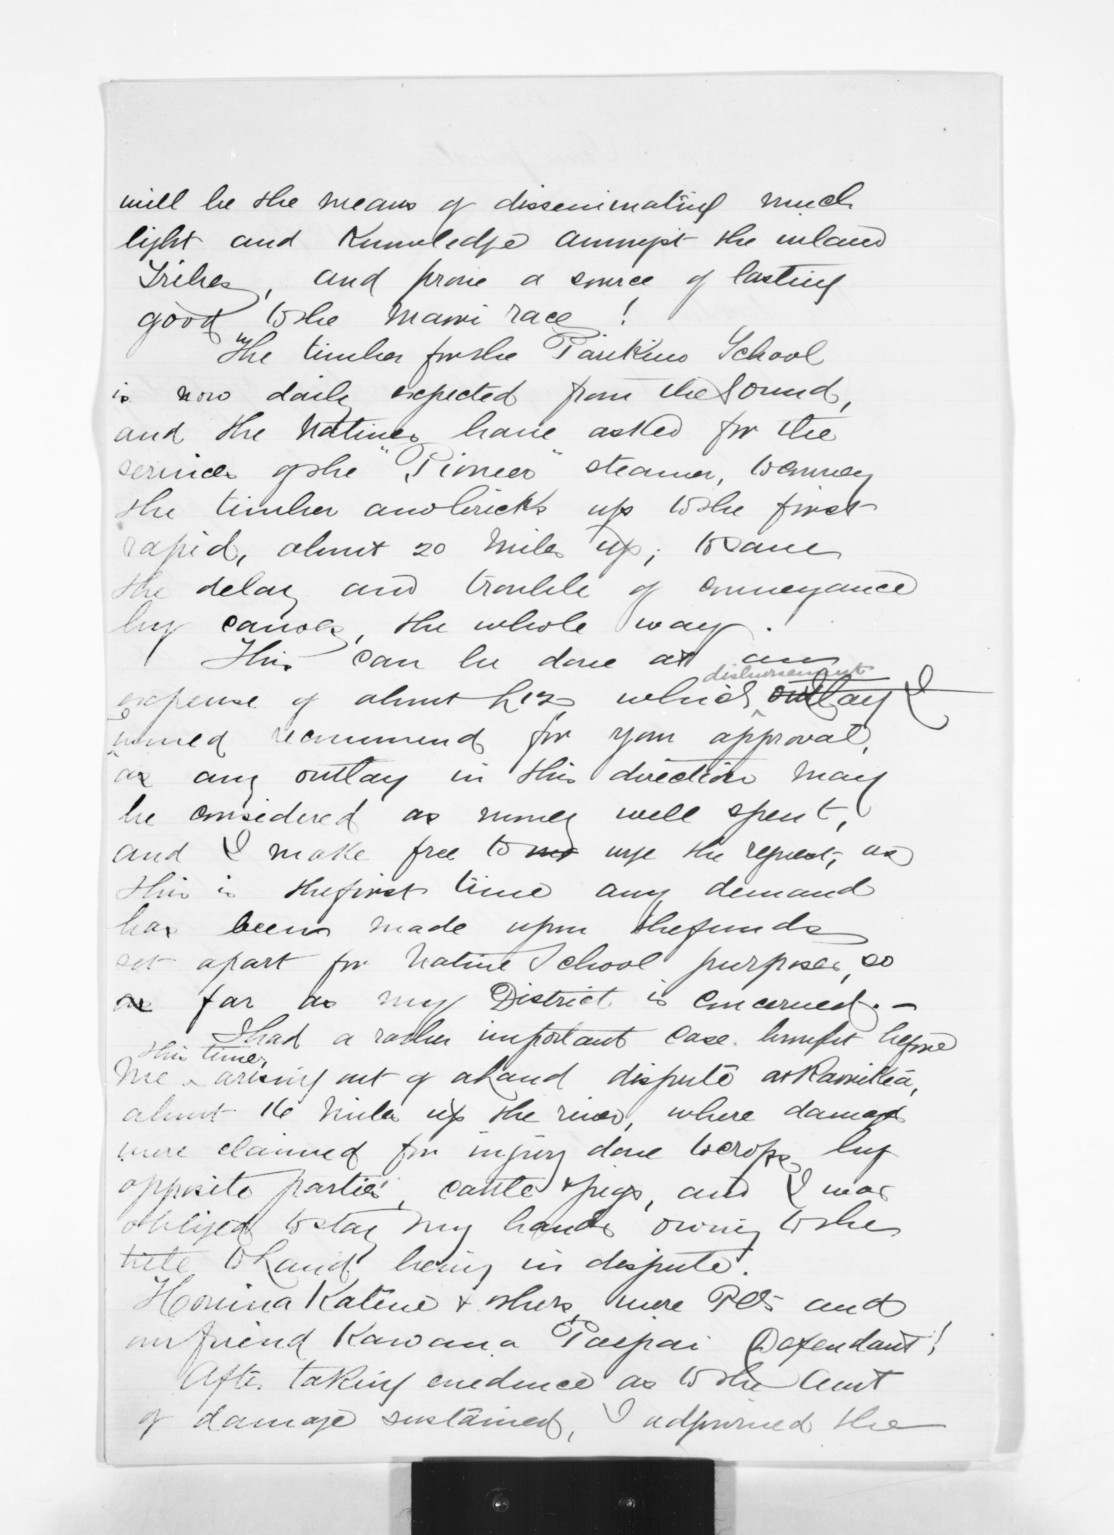 will be the means of disseminating much
light and Knowledge amongst the inland
Tribes, and prove a source of lasting
good to the Maori race !
The timber for the Parikino School
is now daily expected from the Sound,
and the Natives have asked for the
services of the "Pioneer" steamer, to convey
the timber and bricks up to the first
rapid, about 20 Miles up; to save
the delay and trouble of conveyance
by canoes, the whole way.
This can be done at an
disbursement
expense of about £12, which outlay I
would recommend for your approval,
as any outlay in this direction may
be considered as money well spent,
and I make free to urge the request, as
this is the first time any demand
has been made upon the funds
set apart for Native School purposes, so
as far as my District is concerned. -
I had a rather important case brought before
this time,
me arising out of a Land dispute at
about 16 Miles up the river, where damages
were claimed for injury done to crops, by
opposite parties', cattle & pigs, and I was
obliged to stay my hands owing to the
title to Land being in dispute.
Katene & others, were and
our friend Kawana Paipai Defendant!
After taking evidence as to the Amt
of damage sustained, I adjourned the